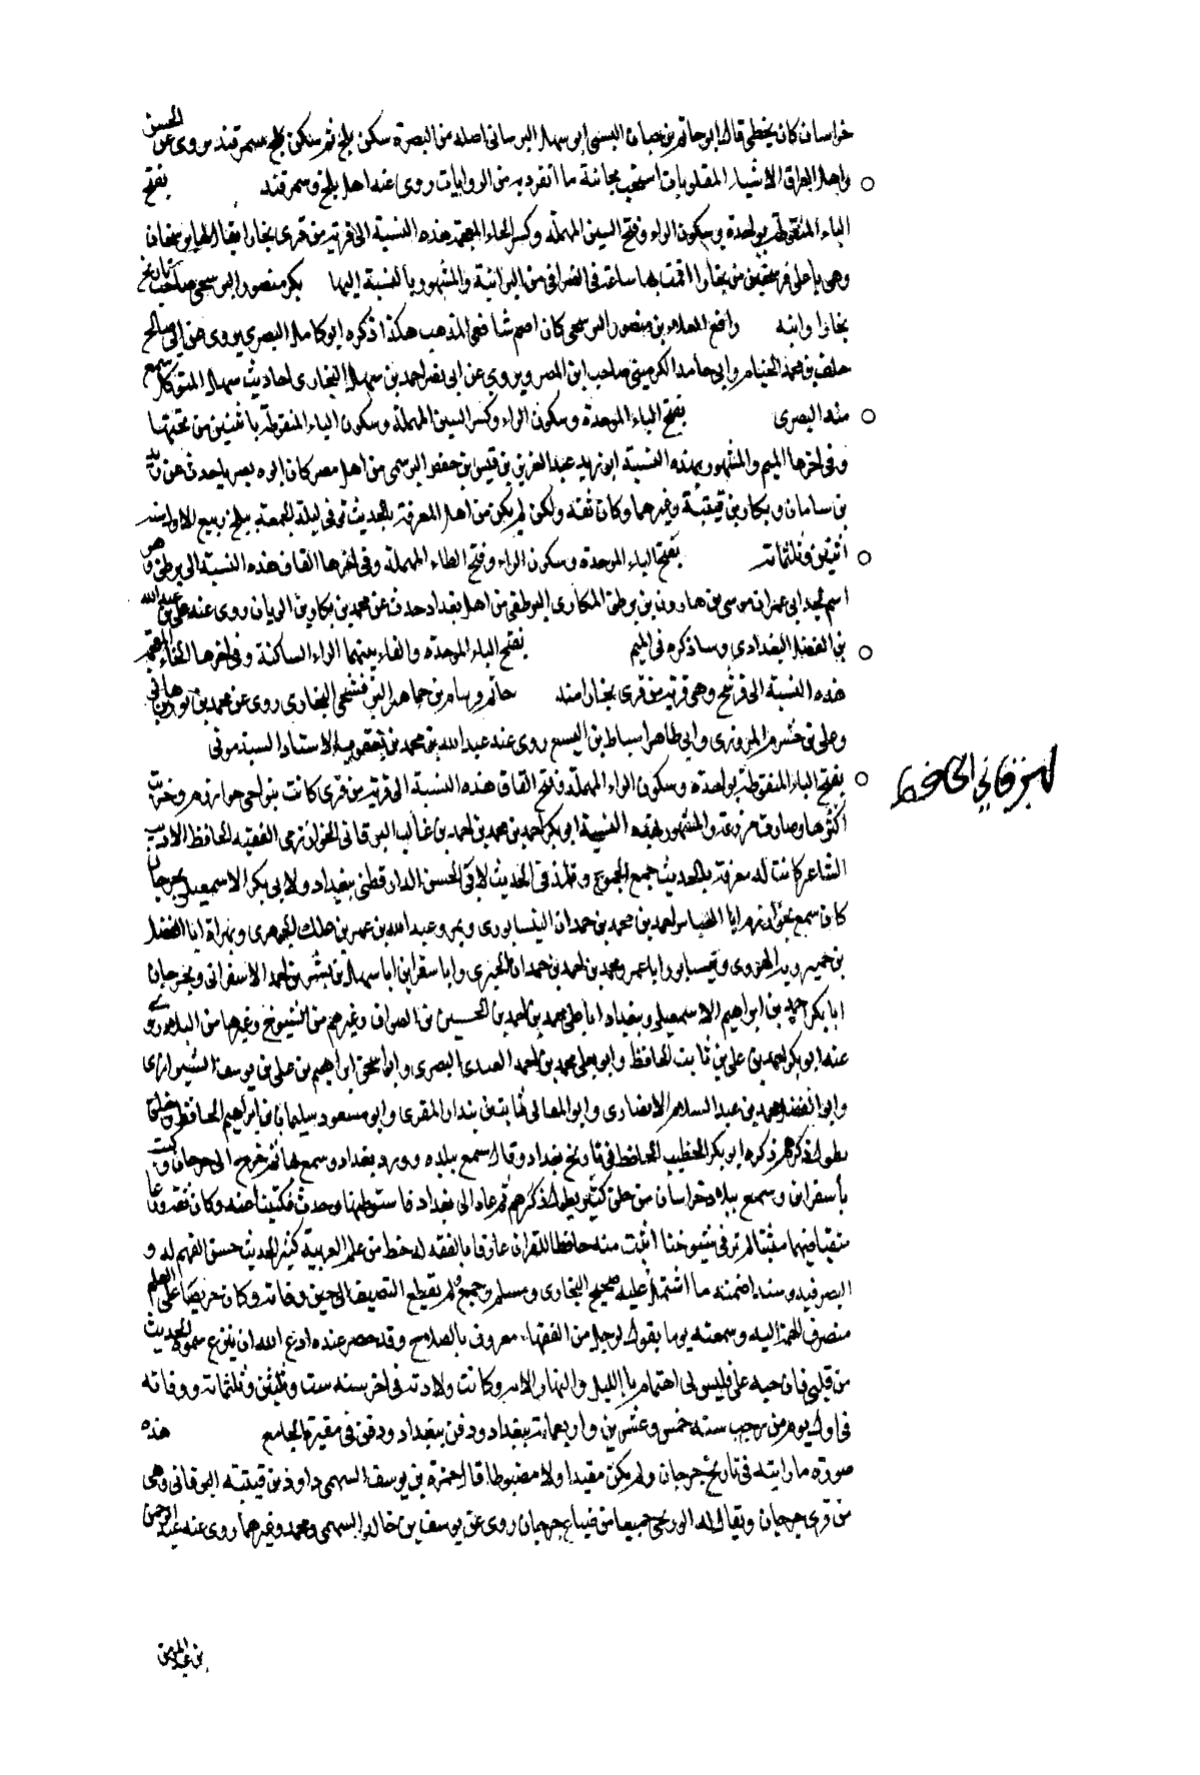 خراسان كان يخطى قال ابو حاتم بن حبان البستى ابو سهل البرسانى اصله من البصرة سكن بلخ ثم سكن سمرقند يروى عن الحسن
واهل العراق الاشياء المقلوبات استحب مجانبة ما انفرد به من الروايات روى عنه اهل بلخ وسمرقند بفتح
الباء المنقوطة بواحدة وسكون الراء وفتح السين المهملة وكسر الخاء المعجمة هذه النسبة الى قرية من قرى بخارا يقال لها
وهى على فرسخين من بخارا اقمت بها ساعة فى انصرافى من البرانية والمشهور بالنسبة اليها بكر منصور البرسخى صاحب تاريخ
بخارا وابنه رافع العلاء بن منصور البرسخى كان اصم شافعى المذهب هكذا ذكره ابو كامل البصرى يروى عن ابى صالح
خلف بن محمد الخيام وابى حامد الكرمينى صاحب ابن الضر ويروى عن ابى نصر احمد بن سهل البخارى احاديث سهل المتوكل سمع
منه البصرى بفتح الباء الموحدة وسكون الراء وكسر السين المهملة وسكون الياء المنقوطة باثنتين من تحتها
وفى اخرها الميم والمشهور بهذه النسبة ابو زيد عبد العزيز بن قيس بن حفص البرسمى من اهل مصر كان ابوه بصريا حدث عن يزيد
بن سنان وبكار بن قتيبة وغيرهما وكان ثقة ولكن لم يكن من اهل المعرفة بالحديث توفى ليلة الجمعة ربيع الاول سنة
اثنتين وثلثمائة بفتح الباء الموحدة وسكون الراء وفتح الطاء المهملة وفى اخرها القاف هذه النسبة الى برطق وهو
اسم لجد ابى عمران موسى بن هارون بن برطق المكارى البرطقى من اهل بغداد حدث عن محمد بن بكار بن الريان روى عنه على بن عبد الله
بن الفضل البغدادى وساذكره فى الميم بفتح الباء الموحدة والفاء بينهما الراء الساكنة وفى اخرها الخاء المعجمة
هذه النسبة الى برفشخ وهى قرية من قرى بخارا منه حاتم وبسام بن مجاهد البرفشخى البخارى روى عن محمد بن هانى
وعلى بن خشرم المروزى وابى طاهر اسباط بن اليسع روى عنه عبد الله بن محمد بن يعقوب الاستاذ السبذمونى
بفتح الباء المنقوطة بواحدة وسكون الراء المهملة وفتح القاف هذه النسبة الى قرية من قرى كانت بنواحى خوارزم وخربت
للبرقاني الحافظ
اكثرها وصارت مزرعة والمشهور بهذه النسبة ابو بكر احمد بن محمد بن احمد بن غالب البرقانى الخوارزمى الفقيه الحافظ الاديب
الشاعر كانت له معرفة بالحديث جمع الجموع وتلمذ فى الحديث لابى الحسن الدارقطنى ببغداد ولابى بكر الاسمعيلى بجرجان
كان سمع بخوارزم ابا العباس احمد بن محمد بن حمدان النيسابورى وبمرو عبد الله بن عمر بن علك الجوهرى وبهراة ابا الفضل
بن خميرويه الهروى وبنيسابور ابا عمرو محمد بن احمد بن حمدان الحيرى وباسفراين ابا سهل بن بشر بن احمد الاسفراينى وبجرجان
ابا بكر احمد بن ابراهيم الاسمعيلى وببغداد ابا على محمد بن احمد بن الحسين بن الصواف وغيرهم من الشيوخ وغيرها من البلاد روى
عنه ابو بكر احمد بن على بن ثابت الحافظ وابو يعلى محمد بن احمد العبدى البصرى وابو اسحق ابراهيم بن على بن يوسف الشيرازى
وابو الفضل محمد بن عبد السلام الانصارى وابو المعالى ثابت بن بندار المقرى وابو مسعود سليمان بن ابراهيم الحافظ وخلق
يطول ذكرهم ذكره ابو بكر الخطيب الحافظ فى تاريخ بغداد وقال سمع ببلده وورد بغداد وسمع بها ثم خرج الى جرجان وكتب
باسفراين وسمع ببلاد خراسان من خلق كثير يطول ذكرهم ثم عاد الى بغداد فاستوطنها وحدث فكتبنا عنه وكان ثقة ورعا
متقنا فيهما مثبتا لم نر فى شيوخنا اثبت منه حافظا للقران عارفا بالفقه له حظ من علم العربية كثير الحديث حسن الفهم له و
البصر فيه وسند اضمنه ما اشتمل عليه صحيح البخارى ومسلم وجمع ولم يقطع التصنيف الى حين وفاته وكان حريصا على العلم
منصرف الهمة اليه وسمعته يوما يقول لرجل من الفقهاء معروف بالصلاح وقد حضر عنده ادع الله ان ينزع شهوة الحديث
من قلبى فان حبه غلبنى فليس لى اهتمام بالليل والنهار الا به وكانت ولادته فى اخر سنة ست وثلثين وثلثمائة ووفاته
فى اول يوم من رجب سنة خمس وعشرين واربعمائة ببغداد ودفن ببغداد ودفن فى مقبرة الجامع هذه
صورة ما رايته فى تاريخ جرجان ولم يكن مقيدا ولا مضبوطا قال حمزة بن يوسف السهمى داود بن قتيبة البرقانى وهى
من قرى جرجان ويقال له الورنجى جميعا من ضياع جرجان روى عن يوسف بن خالد السمتى ومحمد وغيرهما روى عنه عبد الرحمن
بن عبد المومن